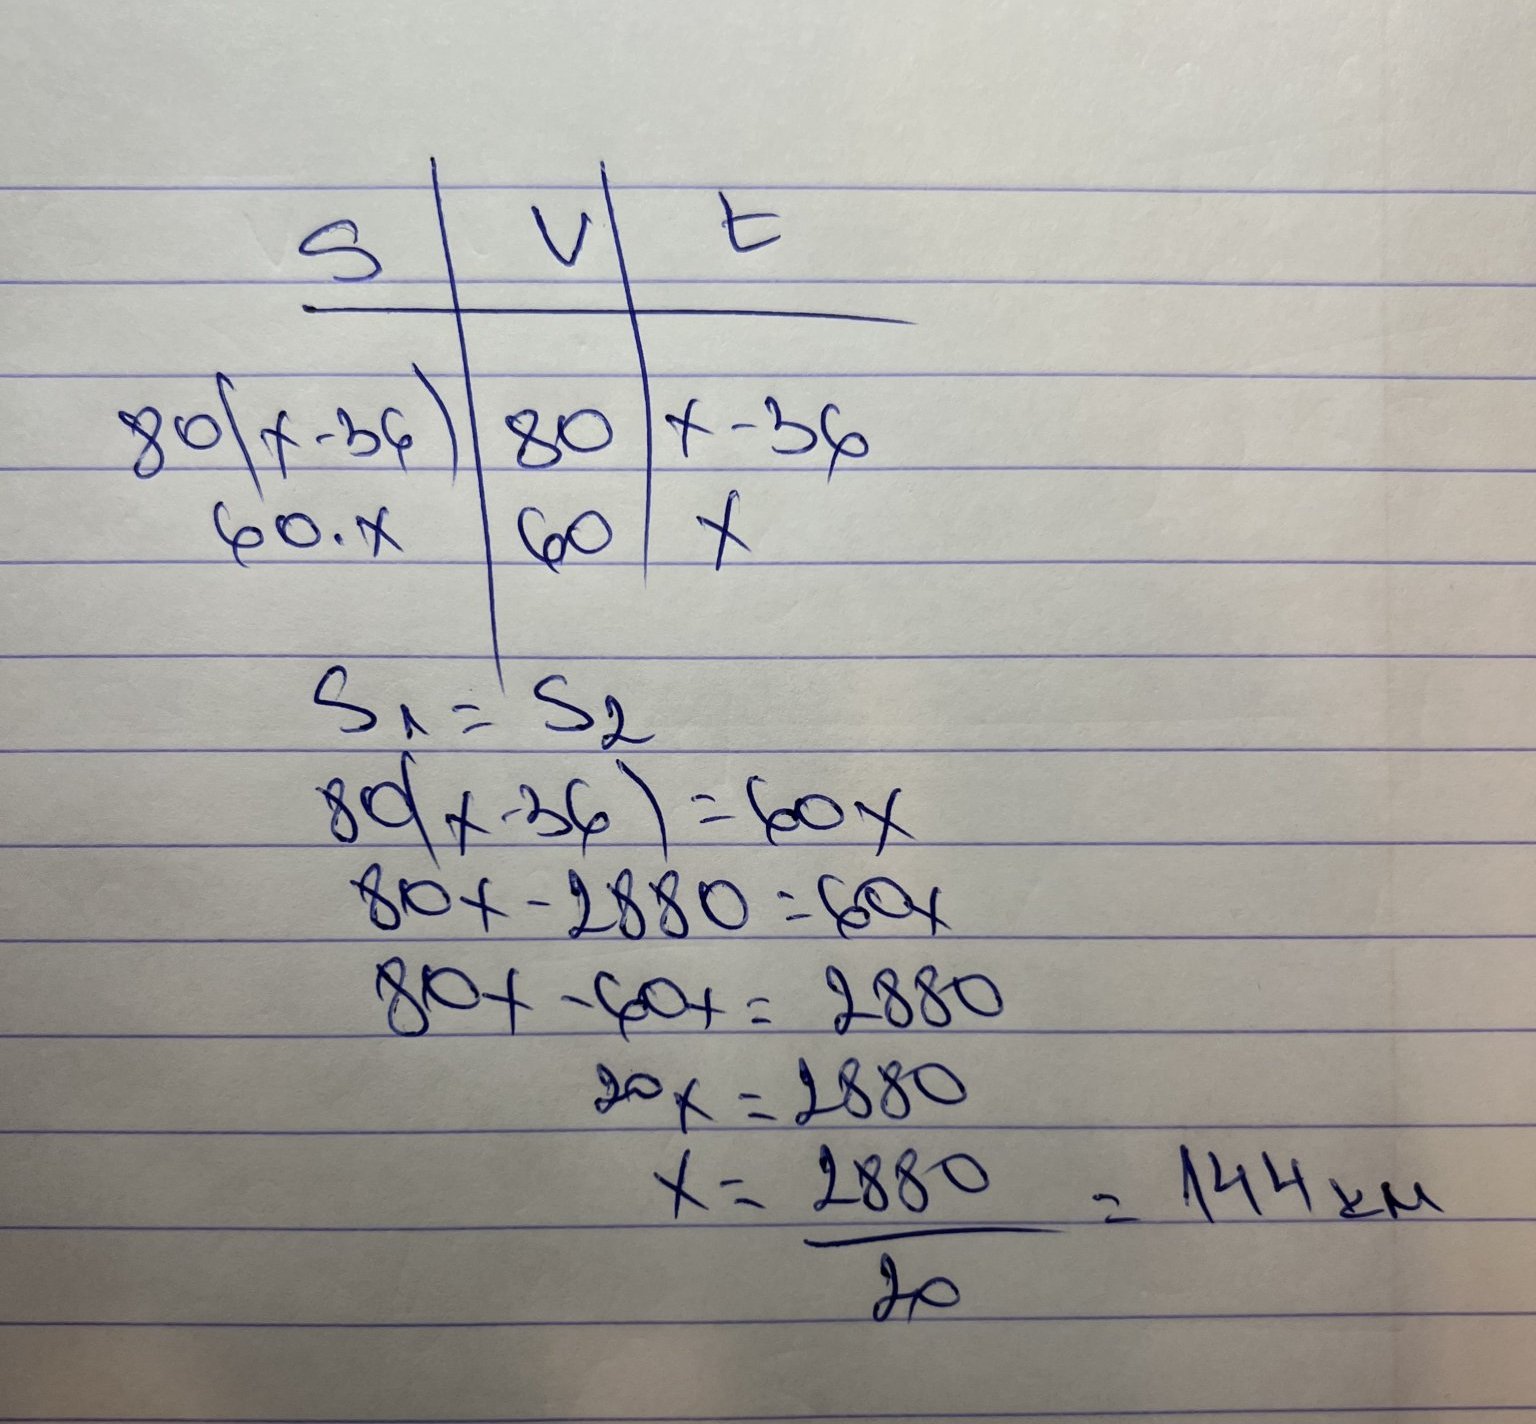 S V t
80(x-36) 80 x-36
60.x 60 x
S1 = S2
80(x-36) = 60x
80x-2880=60x
80x-60x= 2880
20x = 2880
x = 2880/20 = 144 км